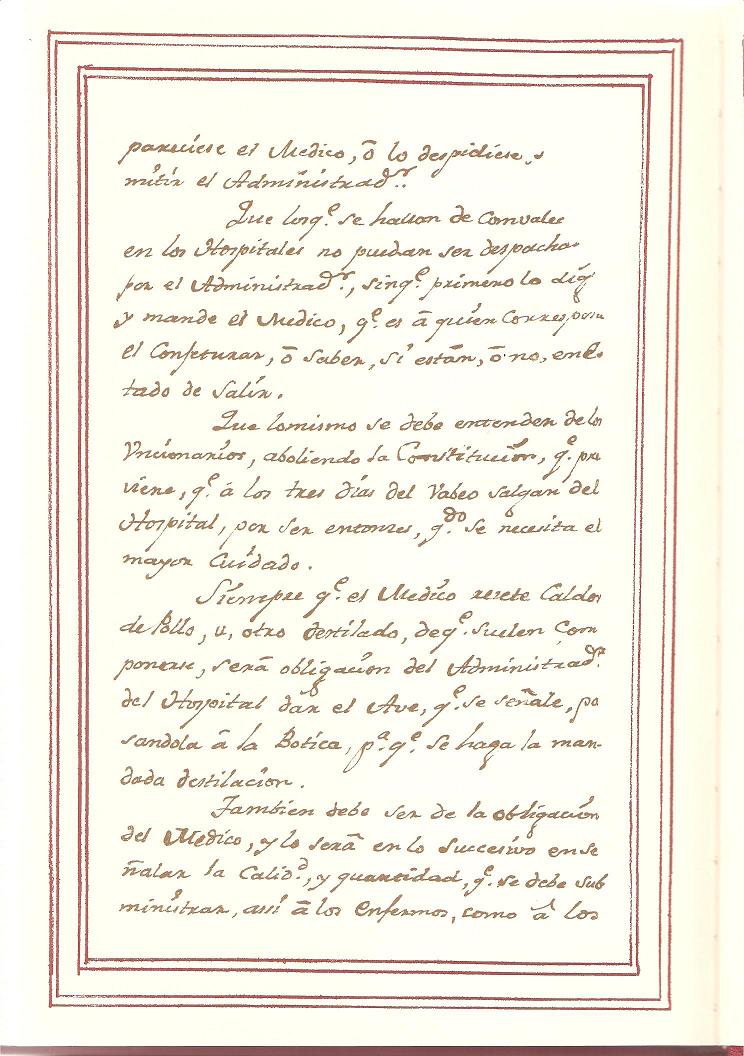 pareciese el Medico, ō lo despidiese, s
mitir el Administrad.ᵒʳ
Que losq.ᵉ se hallan de Comvalec
en los Hospitales no puedan ser despacha
por el Administrad.ᵒʳ, sinq.ᵉ primero lo dig
y mande el Medico, q.ᵉ es ā quien Correspon
el Confeturar, ō saber, si están, ō no, en Es
tado de Salir.
Que lomismo se debe entender de los
Vncionarios, aboliendo la Constitución, q.ᵉ pre
viene, q.ᵉ á los tres días del Vabeo salgan del
Hospital, por ser entonzes, q.ᵈᵒ se necesita el
mayor Cuidado.
Siempre q.ᵉ el Medico recete Caldos
de Pollo, u, otro destilado, deq.ᵉ suelen Com
ponerse, serā obligación del Administrad.ᵒʳ
del Hospital dār el Ave, q.ᵉ se señale, pa
sandola ā la Botica, p.ᵃ q.ᵉ se haga la man-
dada destilacion.
Tambien debe ser de la obligación
del Medico, y lo serā en lo succesivo en se
ñalar la Calid.ᵈ, y quantidad, q.ᵉ se debe sub
ministrar, assi ā los Enfermos, como ā los